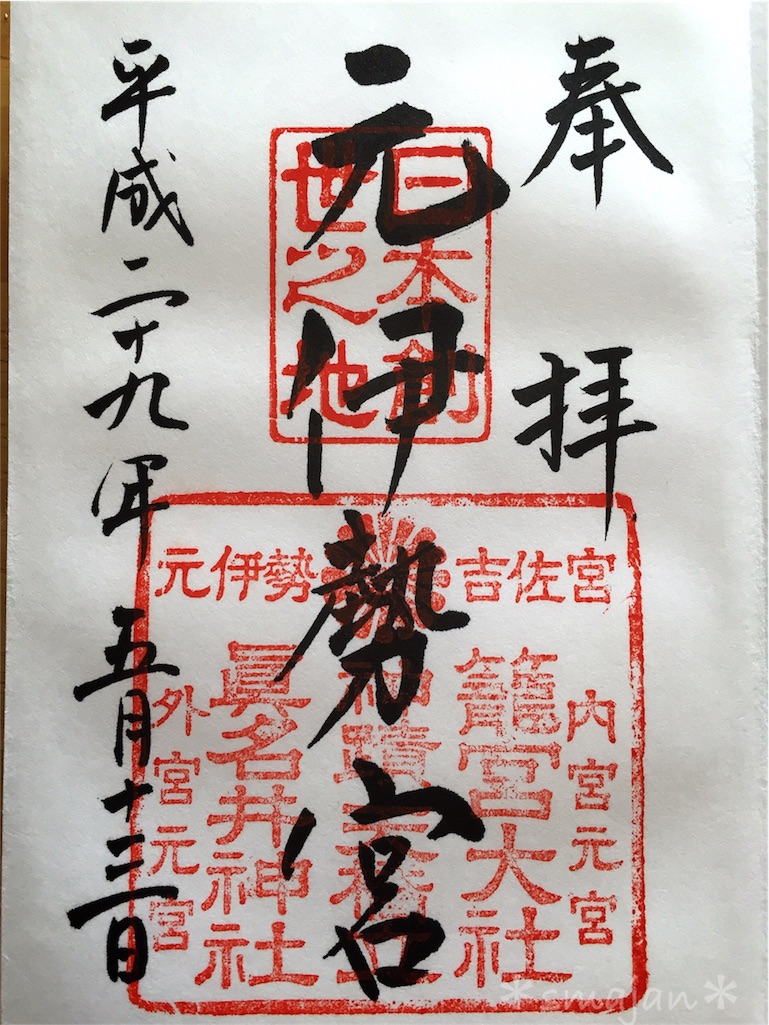 奉拝
元伊勢宮
平成二十九年五月十三日
日本創
世之地
元伊勢 吉佐宮
内宮元宮
籠宮大社
神蹟
眞名井神社
外宮元宮